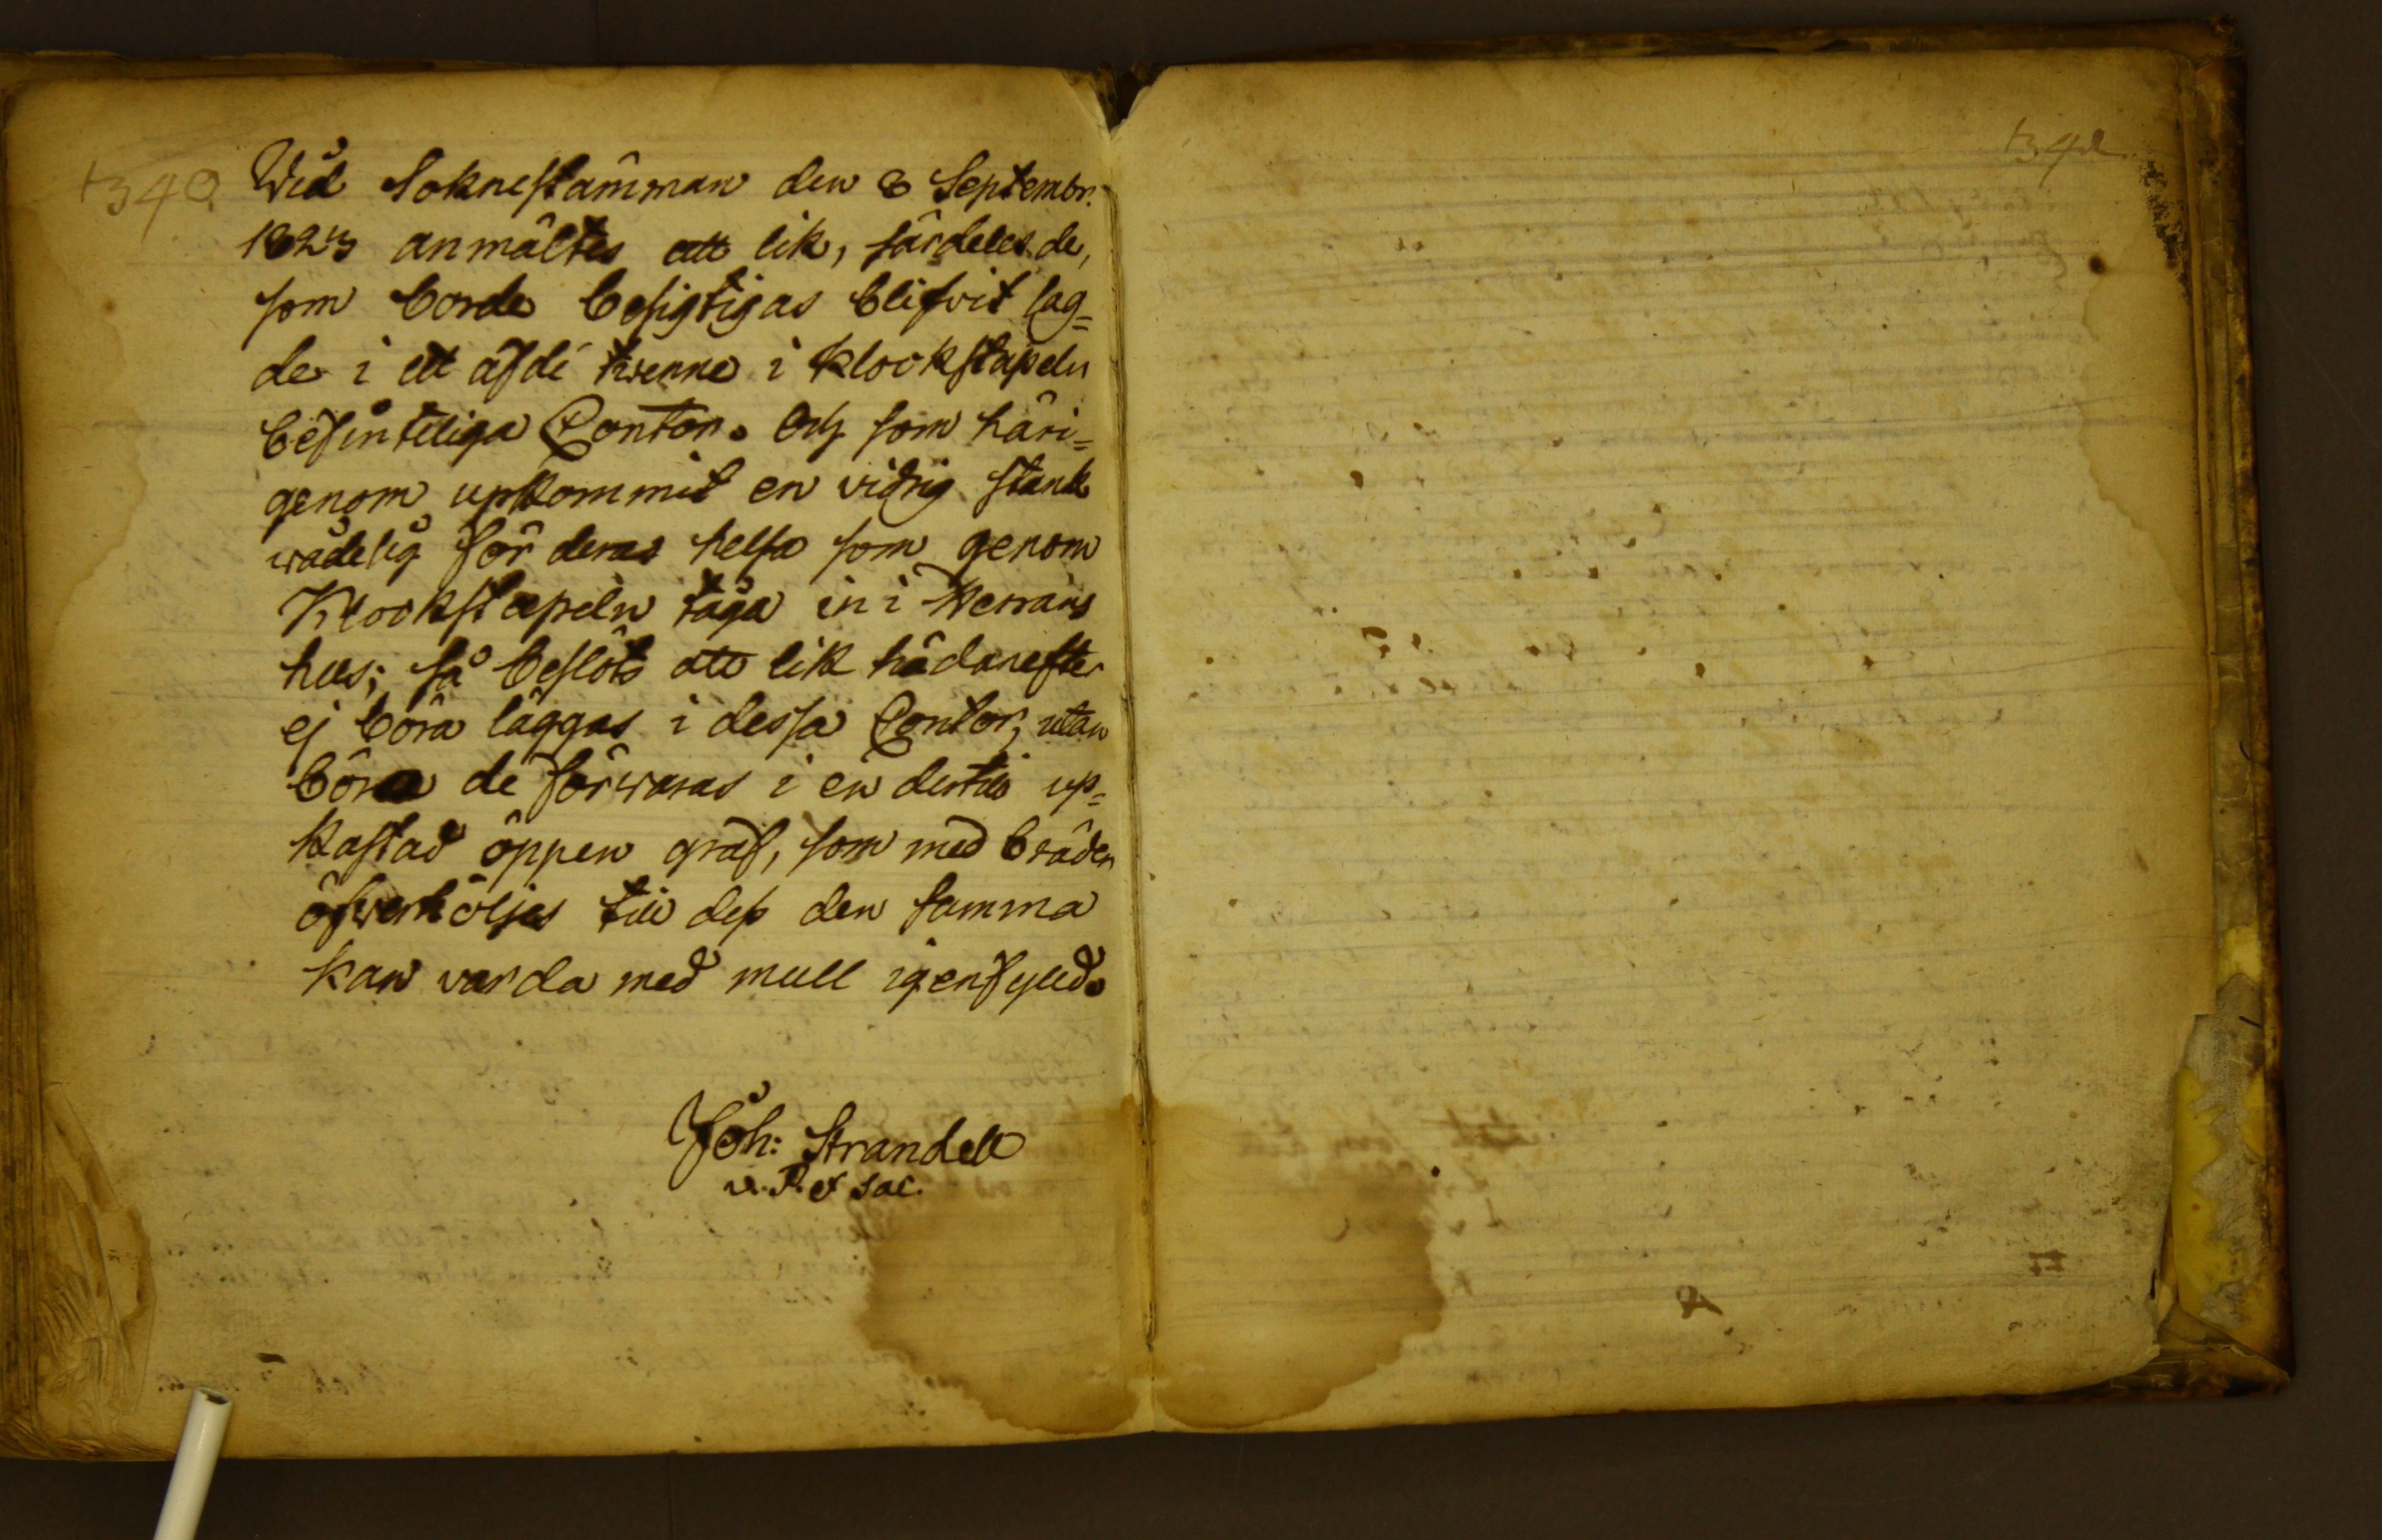 1340.
Wid Soknestämman den 8 Septembr.
1823 anmältes att lik, särdeles de,
som borde besigtigas blifvit lag=
de i ett af de twenne i klockstapeln
befinteliga Contor. Och som häri=
genom upkommit en vidrig stank
wådelig för deras helsa som genom
Klockstapeln tåga in i Herrans
hus; så beslöts att lik hädanefter
ej böra läggas i dessa Contor, utan
böra de förwaras i en dertill up=
kastad öppen graf, som med bräder
öfwerhöljes till dess den samma
kan varda med mull igenfylld.
Joh: Strandell
v. P. et Sac.